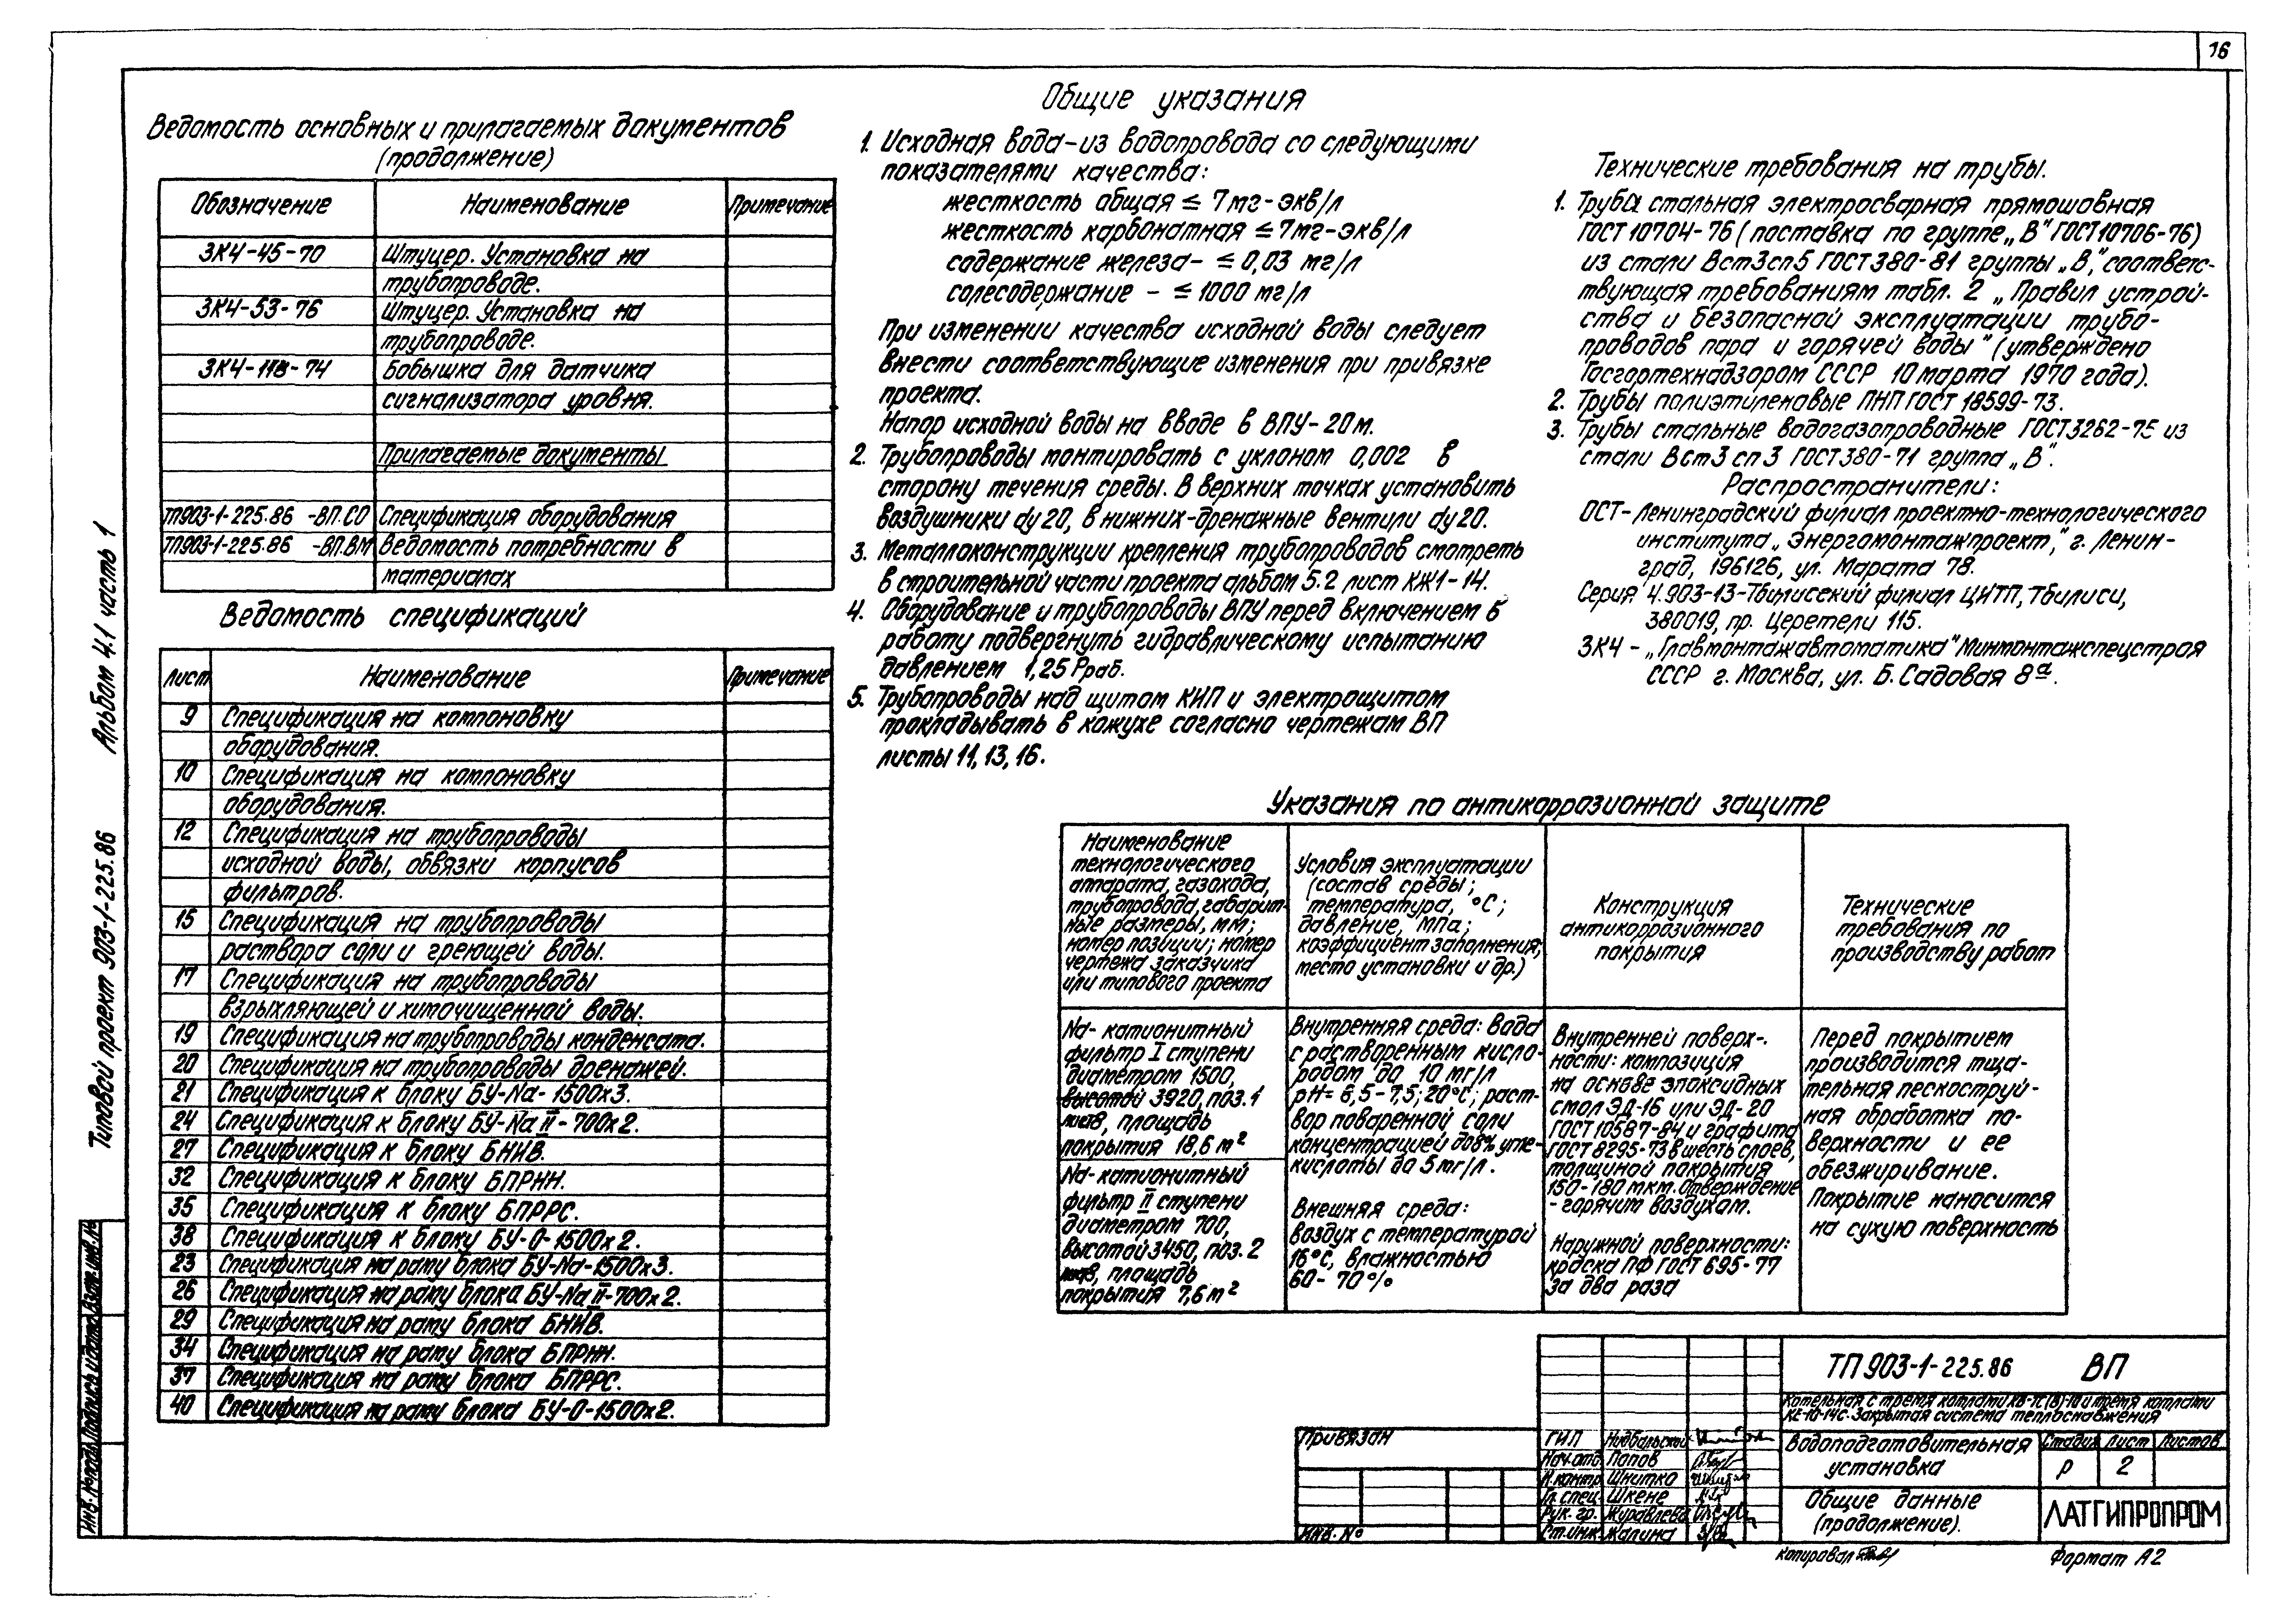 16
Ведомость основных и прилагаемых документов
(продолжение)
Обозначение Наименование Примечание
ЗК4-45-70 Штуцер. Установка на
трубопроводе.
ЗК4-53-76 Штуцер. Установка на
трубопроводе.
ЗК4-118-74 Бобышка для датчика
сигнализатора уровня.
Прилагаемые документы
ТП903-1-225.86 -ВП.СО Спецификация оборудования
ТП903-1-225.86 -ВП.ВМ Ведомость потребности в
материалах
Ведомость спецификаций
Лист Наименование Примечание
9 Спецификация на компоновку
оборудования.
10 Спецификация на компоновку
оборудования.
12 Спецификация на трубопроводы
исходной воды, обвязки корпусов
фильтров.
15 Спецификация на трубопроводы
раствора соли и греющей воды.
17 Спецификация на трубопроводы
взрыхляющей и химочищенной воды.
19 Спецификация на трубопроводы конденсата.
20 Спецификация на трубопроводы дренажей.
21 Спецификация к блоку БУ-Na-1500х3.
24 Спецификация к блоку БУ-Na II-700х2.
27 Спецификация к блоку БНИВ.
32 Спецификация к блоку БПРНН.
35 Спецификация к блоку БПРРС.
38 Спецификация к блоку БУ-О-1500х2.
23 Спецификация на раму блока БУ-Na-1500х3.
26 Спецификация на раму блока БУ-Na II-700х2.
29 Спецификация на раму блока БНИВ.
34 Спецификация на раму блока БПРНН.
37 Спецификация на раму блока БПРРС.
40 Спецификация на раму блока БУ-О-1500х2.
Общие указания
1. Исходная вода-из водопровода со следующими
показателями качества:
жесткость общая ≤ 7мг-экв/л
жесткость карбонатная ≤ 7мг-экв/л
содержание железа- ≤ 0,03 мг/л
солесодержание - ≤ 1000 мг/л
При изменении качества исходной воды следует
внести соответствующие изменения при привязке
проекта.
Напор исходной воды на вводе в ВПУ-20м.
2. Трубопроводы монтировать с уклоном 0,002 в
сторону течения среды. В верхних точках установить
воздушники dу20, в нижних-дренажные вентили dу20.
3. Металлоконструкции крепления трубопроводов смотреть
в строительной части проекта альбом 5.2 лист КЖ1-14.
4. Оборудование и трубопроводы ВПУ перед включением в
работу подвергнуть гидравлическому испытанию
давлением 1,25 Рраб.
5. Трубопроводы над щитом КИП и электрощитом
прокладывать в кожухе согласно чертежам ВП
листы 11, 13, 16.
Технические требования на трубы.
1. Труба стальная электросварная прямошовная
ГОСТ 10704-76 (поставка по группе „В" ГОСТ 10706-76)
из стали Вст3сп5 ГОСТ 380-81 группы „В", соответс-
твующая требованиям табл. 2 „Правил устрой-
ства и безопасной эксплуатации трубо-
проводов пара и горячей воды" (утверждено
Госгортехнадзором СССР 10 марта 1970 года).
2. Трубы полиэтиленовые ПНП ГОСТ 18599-73.
3. Трубы стальные водогазопроводные ГОСТ 3262-75 из
стали Вст3 сп3 ГОСТ 380-71 группа „В".
Распространители:
ОСТ-Ленинградский филиал проектно-технологического
института „Энергомонтажпроект", г. Ленин-
град, 196126, ул. Марата 78.
Серия 4.903-13-Тбилисский филиал ЦИТП, Тбилиси,
380019, пр. Церетели 115.
ЗК4 - „Главмонтажавтоматика" Минмонтажспецстроя
СССР г. Москва, ул. Б. Садовая 8а.
Указания по антикоррозионной защите
Наименование
технологического
аппарата, газохода,
трубопровода, габарит-
ные размеры, мм;
номер позиции; номер
чертежа заказчика
или типового проекта
Условия эксплуатации
(состав среды;
температура, °С;
давление, МПа;
коэффициент заполнения;
место установки и др.)
Конструкция
антикоррозионного
покрытия
Технические
требования по
производству работ
Na-катионитный
фильтр I ступени
диаметром 1500,
высотой 3920, поз. 1
площадь
покрытия 18,6 м²
Na-катионитный
фильтр II ступени
диаметром 700,
высотой 3450, поз. 2
площадь
покрытия 7,6 м²
Внутренняя среда: вода
с растворенным кисло-
родом до 10 мг/л
рН= 6,5-7,5; 20°С; раст-
вор поваренной соли
концентрацией до 8% угле-
кислоты до 5 мг/л.
Внешняя среда:
воздух с температурой
16°С, влажностью
60-70%
Внутренней поверх-
ности: композиция
на основе эпоксидных
смол ЭД-16 или ЭД-20
ГОСТ 10587-84 и графита
ГОСТ 8295-73 в шесть слоев,
толщиной покрытия
150-180 мкм. Отверждение
- горячим воздухом.
Наружной поверхности:
краска ПФ ГОСТ 695-77
за два раза
Перед покрытием
производится тща-
тельная пескоструй-
ная обработка по-
верхности и ее
обезжиривание.
Покрытие наносится
на сухую поверхность
Альбом 4.1 часть 1
Типовой проект 903-1-225.86
Инв. № подл. Подпись и дата Взам. инв. №
Привязан
Инв. №
ГИП Нидбальский
Нач. отд. Попов
Н. контр. Шнитко
Гл. спец. Шкене
Рук. гр. Журавлева
Ст. инж. Жалина
ТП 903-1-225.86 ВП
Котельная с тремя котлами КВ-ТС(В)-10 и тремя котлами
КЕ-10-14С. Закрытая система теплоснабжения
Водоподготовительная
установка
Стадия Лист Листов
Р 2
Общие данные
(продолжение).
ЛАТГИПРОПРОМ
Копировал
Формат А2